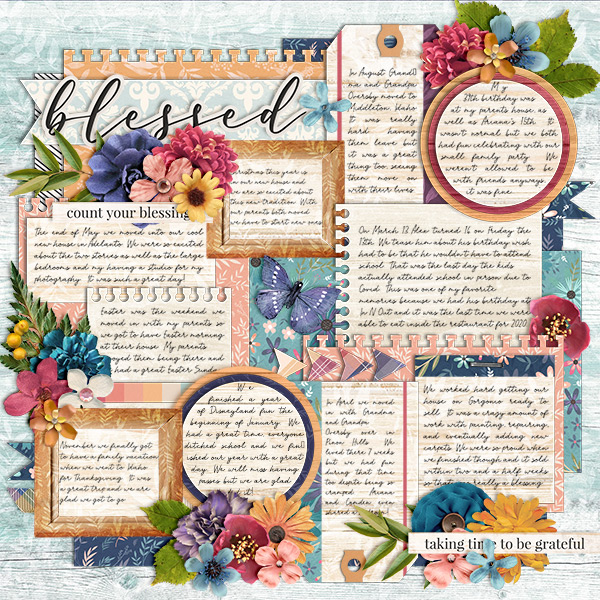 blessed
count your blessing
In August Grand
ma and Grandpa
Oversby moved to
Middleton, Idaho
It was really
hard having
them leave but
it was a great
thing too, seeing
them move on
with their lives.
My
37th birthday was
at my parents' house, as
well as Ariana's 15th. It
wasn't normal but we both
had fun celebrating with our
small family party. We
weren't allowed to be
with friends anyways,
it was fine.
Christmas this year is
in our new house and
we are so excited about
this new tradition. With
our parents both moved
we have to start new ones.
The end of May we moved into our cool
new house in Adelanto. We were so excited
about the two stories as well as the large
bedrooms and my having a studio for my
photography. It was such a great day!
On March 13 Alex turned 16 on Friday the
13th. We tease him about his birthday wish
had to be that he wouldn't have to attend
school. That was the last day the kids
actually attended school in person due to
Covid. This was one of my favorite
memories because we had his birthday at
In N Out and it was the last time we were
able to eat inside the restaurant for 2020.
Easter was the weekend we
moved in with my parents so
we got to have Easter morning
at their house. My parents
oyed them being there and
had a great Easter Sunda
We
finished a year
of Disneyland fun the
beginning of January. We
had a great time, everyone
ditched school and we fin
ished our year with a great
day. We will miss having
passes but we are glad
did it!
In April we moved
in with Grandma
and Grandpa
Oversby over in
Pinon Hills. We
lived there 7 weeks
but we had fun
during that time
too despite being so
cramped. Ariana
and Camden even
shared a
We worked hard getting our
house on Gorgonio ready to
sell. It was a crazy amount of
work with painting, repairing,
and eventually adding new
carpets. We were so proud when
we finished though and it sold
within two and a half weeks
so that was really a blessing.
November we finally got
to have a family vacation
when we went to Idaho
for thanksgiving. It was
a great trip and we are
glad we got to go.
taking time to be grateful